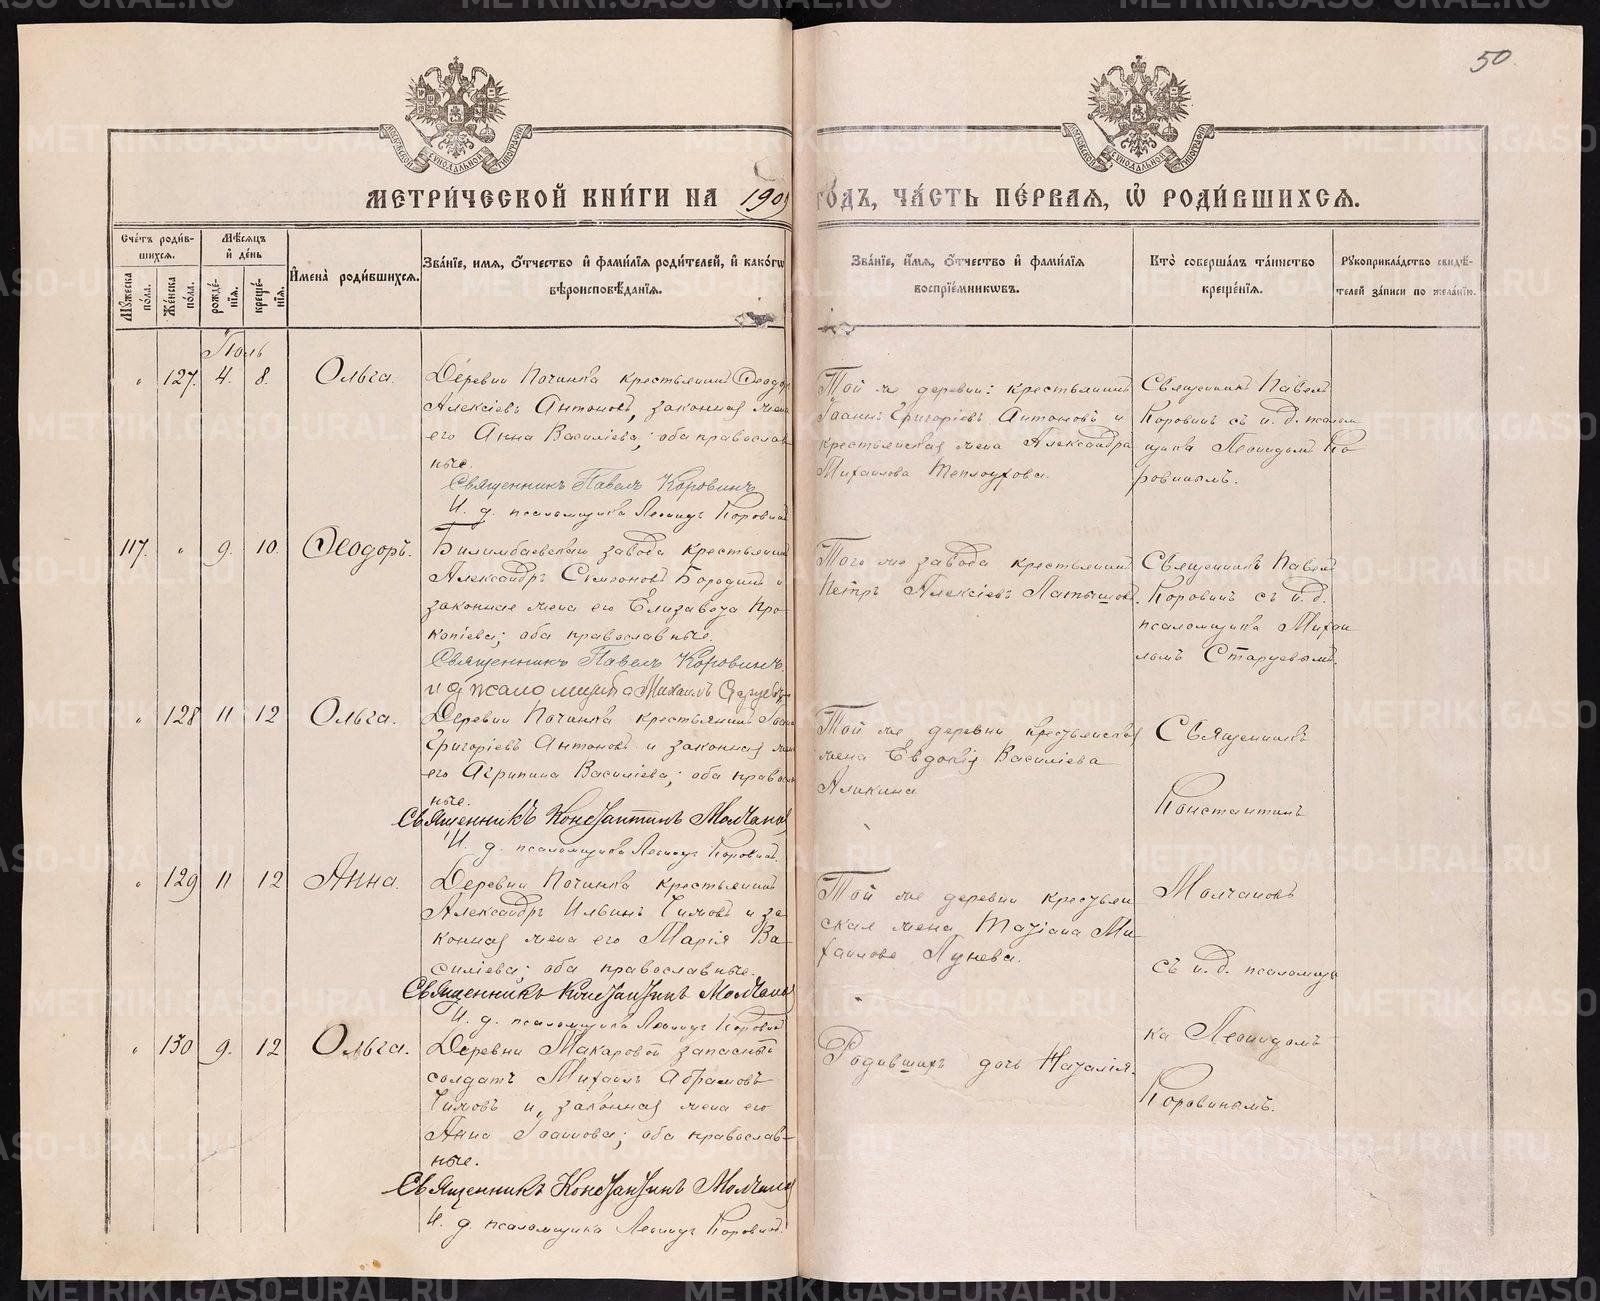 50
МЕТРИ́ЧЕСКОЙ КНИ́ГИ НА 190
ГО́ДЪ, ЧА́СТЬ ПЕ́РВАѦ, Ѽ РОДИ́ВШИХСѦ.
Сче́тъ роди́в-
шихсѧ.
Мꙋ́жеска по́ла.
Же́нска по́ла.
Мѣ́сѧцъ и҆ де́нь
рожде́-нїѧ.
креще́-нїѧ.
И҆мена̀ роди́вшихсѧ.
Зва́нїе, имѧ, ѻ҆́тчество и҆ фами́лїѧ роди́телей, и҆ како́гѡ
вѣроисповѣ́данїѧ.
Зва́нїе, и҆́мѧ, ѻ҆́тчество и҆ фами́лїѧ
воспрїе́мникѡвъ.
Кто̀ соверша́лъ та́инство
креще́нїѧ.
Рꙋкоприкла́дство свидѣ́-
телей за́писи по жела́нїю.
Іюль
" 127. 4. 8. Ольга.
Деревни Починка крестьянинъ Ѳеодоръ
Алексіевъ Антоновъ, законная жена
его Анна Василіева; оба православ
ные.
Священникъ Павелъ Коровинъ
И. д. псаломщика Леонидъ Коровинъ
Той же деревни: крестьянинъ
Іоаннъ Григоріевъ Антоновъ и
крестьянская жена Александра
Михаилова Теплоухова.
Священникъ Павелъ
Коровинъ съ и. д. псалом
щика Леонидомъ Ко
ровинымъ.
117. " 9. 10. Ѳеодоръ.
Билимбаевскаго завода крестьянинъ
Александръ Симеоновъ Бородинъ и
законная жена его Елизавета Про-
копіева; оба православные.
Священникъ Павелъ Коровинъ.
и д псаломщика Михаилъ Старцевъ
Того же завода крестьянинъ
Петръ Алексіевъ Латышовъ.
Священникъ Павелъ
Коровинъ съ и. д.
псаломщика Михаи
ломъ Старцевымъ.
" 128 11 12 Ольга.
Деревни Починка крестьянинъ Іоаннъ
Григоріевъ Антоновъ и законная жена
его Агрипина Василіева; оба православ
ные.
Священникъ Константинъ Молчановъ
И. д. псаломщика Леонидъ Коровинъ.
Той же деревни крестьянская
жена Евдокія Василіева
Аликина
Священникъ
Константинъ
" 129 11 12 Анна.
Деревни Починка крестьянинъ
Александръ Ильинъ Чижовъ и за
конная жена его Марія Ва-
силіева; оба православные.
Священникъ Константинъ Молчановъ
И. д. псаломщика Леонидъ Коровинъ
Той же деревни крестьян
ская жена Татіана Ми-
хаилова Лунева.
Молчановъ
съ и. д. псаломщи
" 130 9. 12 Ольга.
Деревни Макаровой запасный
солдатъ Михаилъ Абрамовъ
Чижовъ и, законная жена его
Анна Іоаннова; оба православ-
ные.
Священникъ Константинъ Молчановъ
И. д. псаломщика Леонидъ Коровинъ.
Родившихъ дочь Наталія.
ка Леонидомъ
Коровинымъ.
METRIKI.GASO-URAL.RU